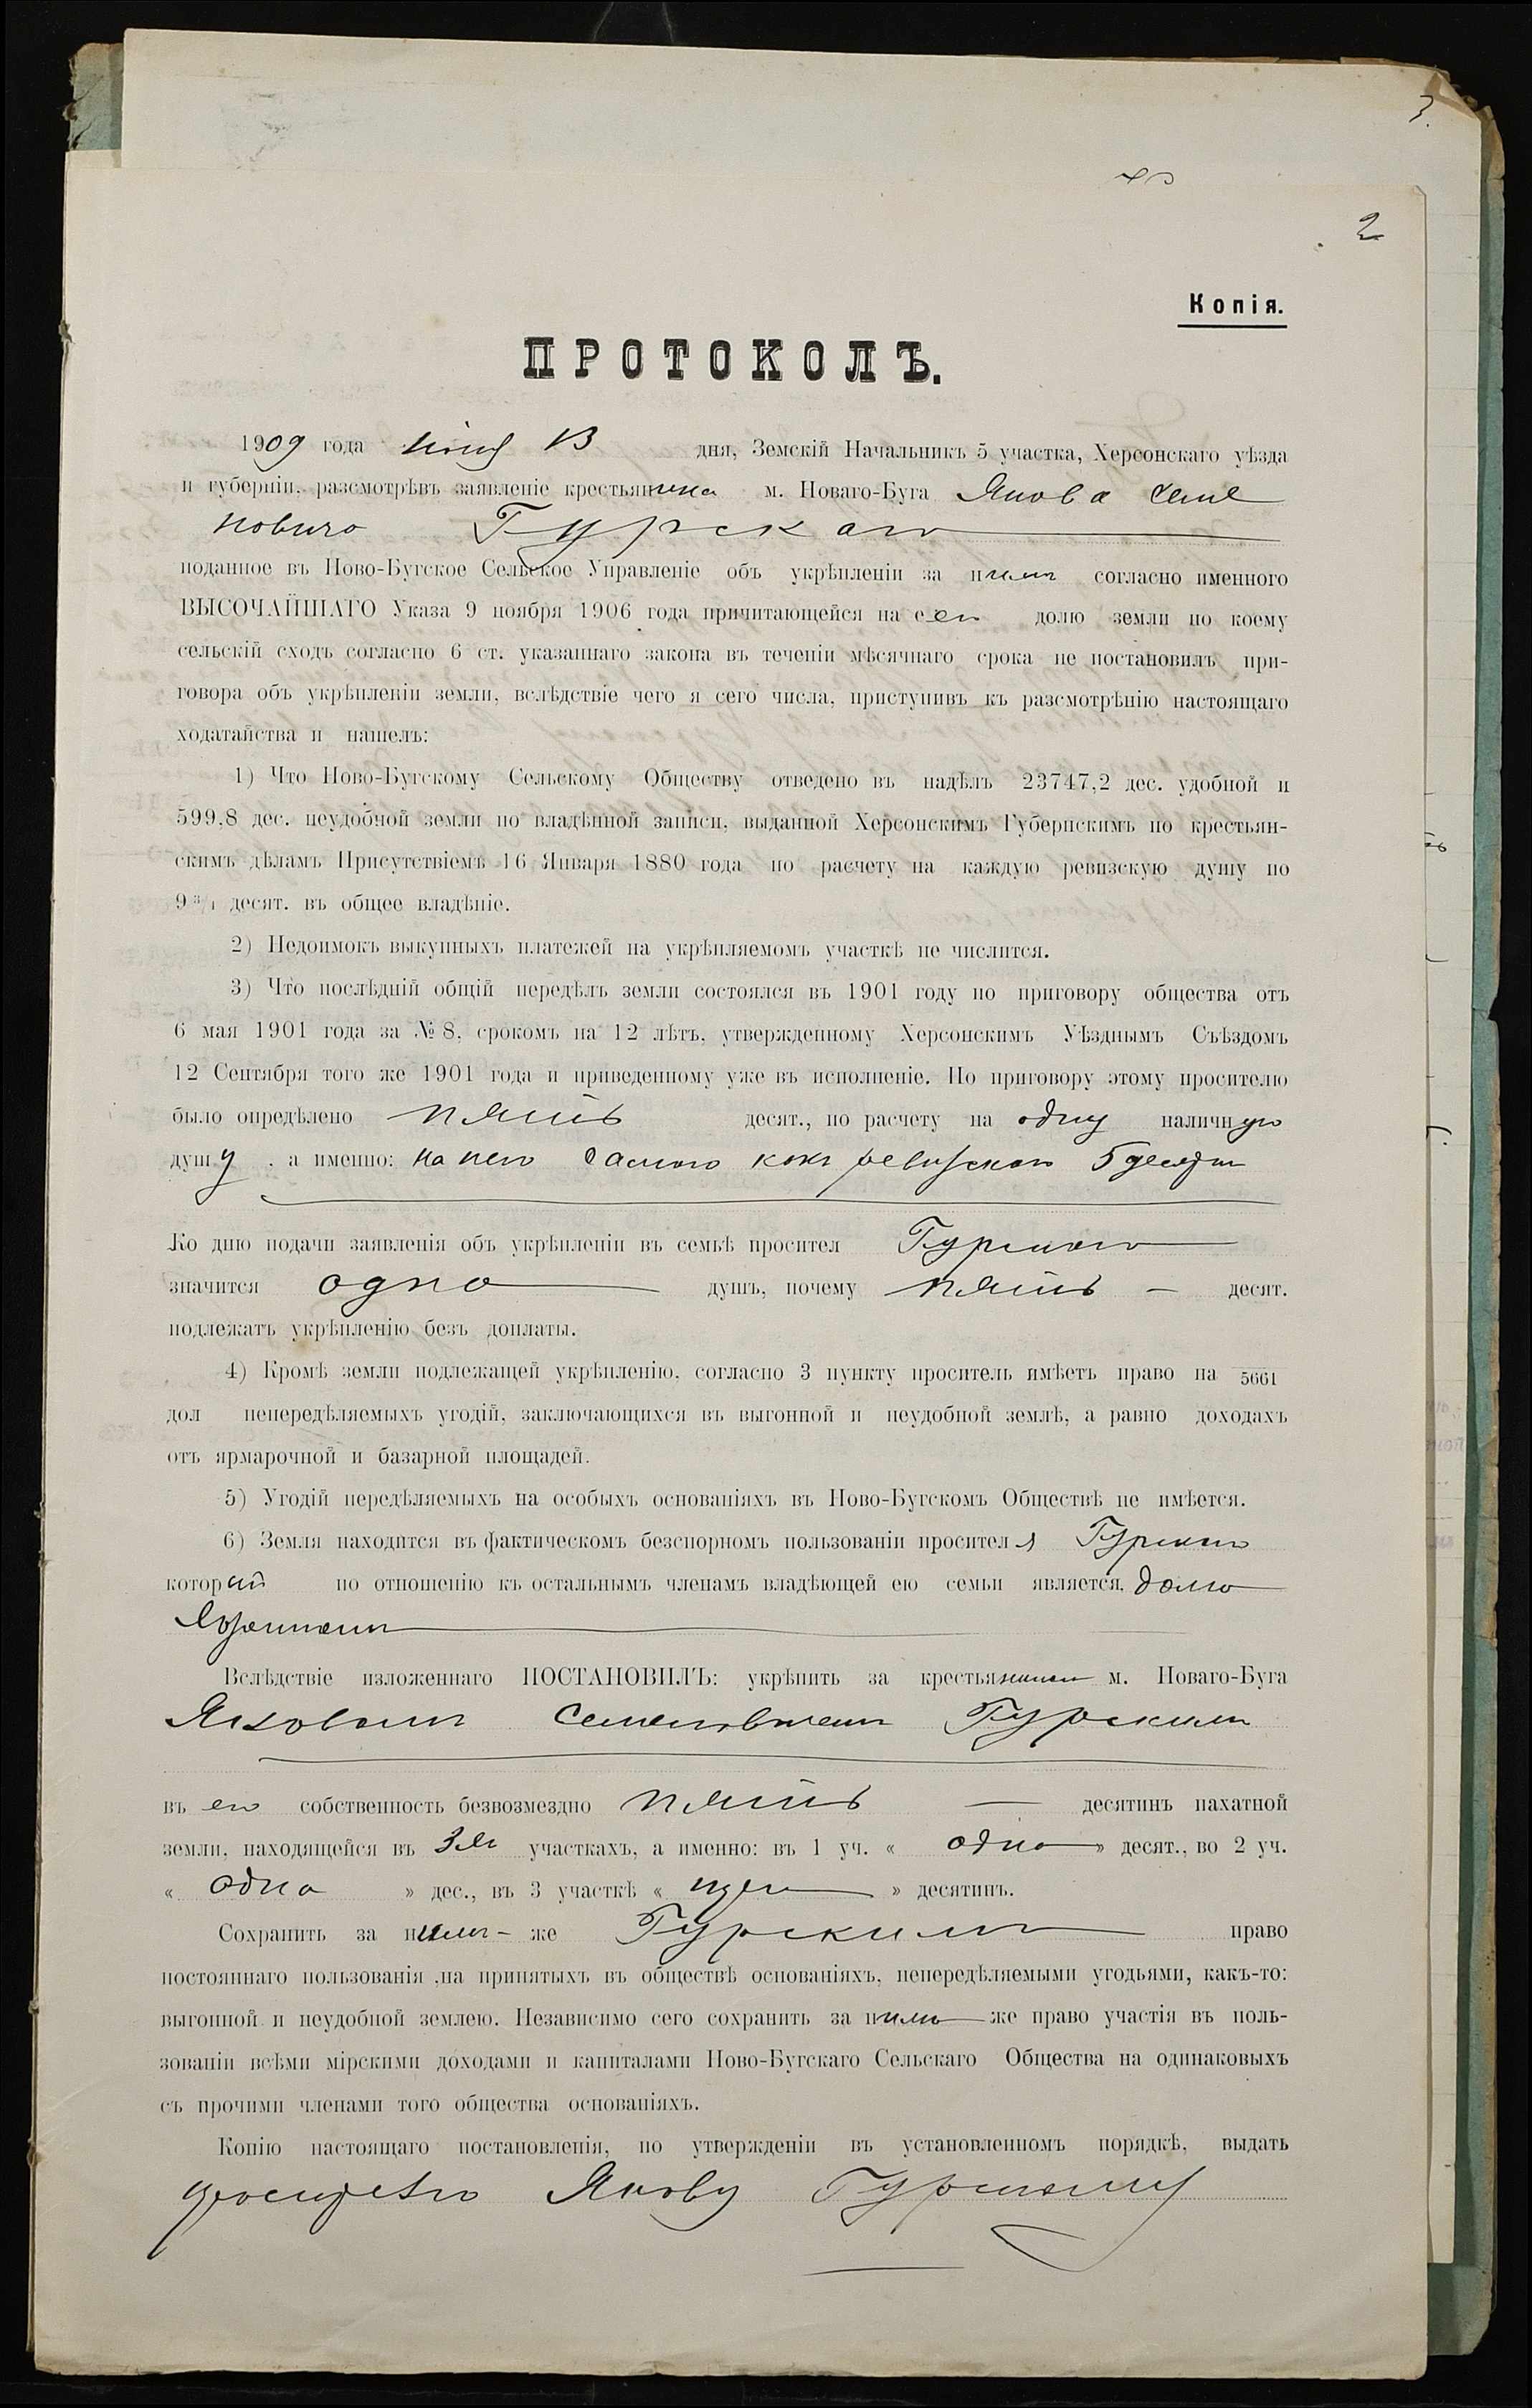 3.
2
Копія.
ПРОТОКОЛЪ.
1909 года іюня 13 дня, Земскій Начальникъ 5 участка, Херсонскаго уѣзда
и губерніи, разсмотрѣвъ заявленіе крестьянина м. Новаго-Буга Якова Семе
новича Гурскаго
поданное въ Ново-Бугское Сельское Управленіе объ укрѣпленіи за нимъ согласно именного
ВЫСОЧАЙШАГО Указа 9 ноября 1906 года причитающейся на его долю земли по коему
сельскій сходъ согласно 6 ст. указаннаго закона въ теченіи мѣсячнаго срока не постановилъ при-
говора объ укрѣпленіи земли, вслѣдствіе чего я сего числа, приступивъ къ разсмотрѣнію настоящаго
ходатайства и нашелъ:
1) Что Ново-Бугскому Сельскому Обществу отведено въ надѣлъ 23747,2 дес. удобной и
599,8 дес. неудобной земли по владѣнной записи, выданной Херсонскимъ Губернскимъ по крестьян-
скимъ дѣламъ Присутствіемъ 16 Января 1880 года по расчету на каждую ревизскую душу по
9 3/4 десят. въ общее владѣніе.
2) Недоимокъ выкупныхъ платежей на укрѣпляемомъ участкѣ не числится.
3) Что послѣдній общій передѣлъ земли состоялся въ 1901 году по приговору общества отъ
6 мая 1901 года за № 8, срокомъ на 12 лѣтъ, утвержденному Херсонскимъ Уѣзднымъ Съѣздомъ
12 Сентября того же 1901 года и приведенному уже въ исполненіе. По приговору этому просителю
было опредѣлено пять десят., по расчету на одну наличную
душу, а именно: на него самого какъ ревизскаго 5 десятин
Ко дню подачи заявленія объ укрѣпленіи въ семьѣ просител Гурскаго
значится одна душъ, почему пять — десят.
подлежатъ укрѣпленію безъ доплаты.
4) Кромѣ земли подлежащей укрѣпленію, согласно 3 пункту проситель имѣетъ право на 5661
дол непередѣляемыхъ угодій, заключающихся въ выгонной и неудобной землѣ, а равно доходахъ
отъ ярмарочной и базарной площадей.
5) Угодій передѣляемыхъ на особыхъ основаніяхъ въ Ново-Бугскомъ Обществѣ не имѣется.
6) Земля находится въ фактическомъ безспорномъ пользованіи просителя Гурскаго
который по отношенію къ остальнымъ членамъ владѣющей ею семьи является, домо
хозяиномъ
Вслѣдствіе изложеннаго ПОСТАНОВИЛЪ: укрѣпить за крестьяниномъ м. Новаго-Буга
Яковомъ Семеновичемъ Гурскимъ
въ его собственность безвозмездно пять — десятинъ пахатной
земли, находящейся въ 3хъ участкахъ, а именно: въ 1 уч. « одна » десят., во 2 уч.
« одна » дес., въ 3 участкѣ « три » десятинъ.
Сохранить за нимъ - же Гурскимъ право
постояннаго пользованія ,на принятыхъ въ обществѣ основаніяхъ, непередѣляемыми угодьями, какъ-то:
выгонной и неудобной землею. Независимо сего сохранить за нимъ же право участія въ поль-
зованіи всѣми мірскими доходами и капиталами Ново-Бугскаго Сельскаго Общества на одинаковыхъ
съ прочими членами того общества основаніяхъ.
Копію настоящаго постановленія, по утвержденіи въ установленномъ порядкѣ, выдать
Якову Гурскому